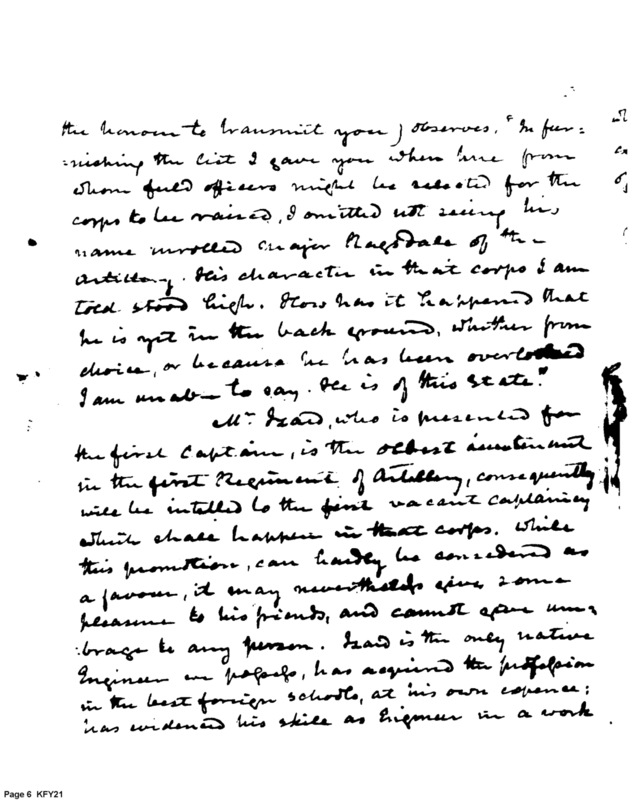 the honour to transmit you) observes. "In fur=
=nishing the list I gave you when here from
whom field officers might be selected for the
corps to be raised, I omitted not seeing his
name inrolled Major Ragsdale of the
Artillery. His character in that corps I am
told stood high. How has it happened that
he is yet in the back ground, whether from
choice, or because he has been overlooked
I am unable to say. He is of this State."
Mr. Izard, who is presented for
the first Captain, is the oldest lieutenant
in the first Regiment of Artillery, consequently
will be intitled to the first vacant captaincy
which shall happen in that corps. While
this promotion, can hardly be considered as
a favour, it may nevertheless give some
pleasure to his friends, and cannot give um=
=brage to any person. Izard is the only native
Engineer we possess, has acquired the profession
in the best foreign schools, at his own expence;
has evidenced his skill as Engineer in a work
Page 6 KFY21